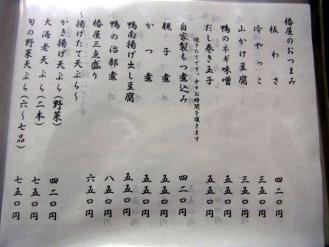 椿屋のおつまみ
板わさ 四二〇円
冷やっこ 三五〇円
山かけ豆腐 三五〇円
鴨のネギ味噌 五五〇円
だし巻き玉子 五五〇円
自家製もつ煮込み 四二〇円
親子煮 五五〇円
かつ煮 五五〇円
鴨南揚げ出し豆腐 五五〇円
鴨の治部煮 八五〇円
椿屋三点盛り 六五〇円
〜揚げたて天ぷら〜
かき揚げ天ぷら(野菜) 四二〇円
大海老天ぷら(二本) 七五〇円
旬の野菜天ぷら(六〜七品) 七五〇円